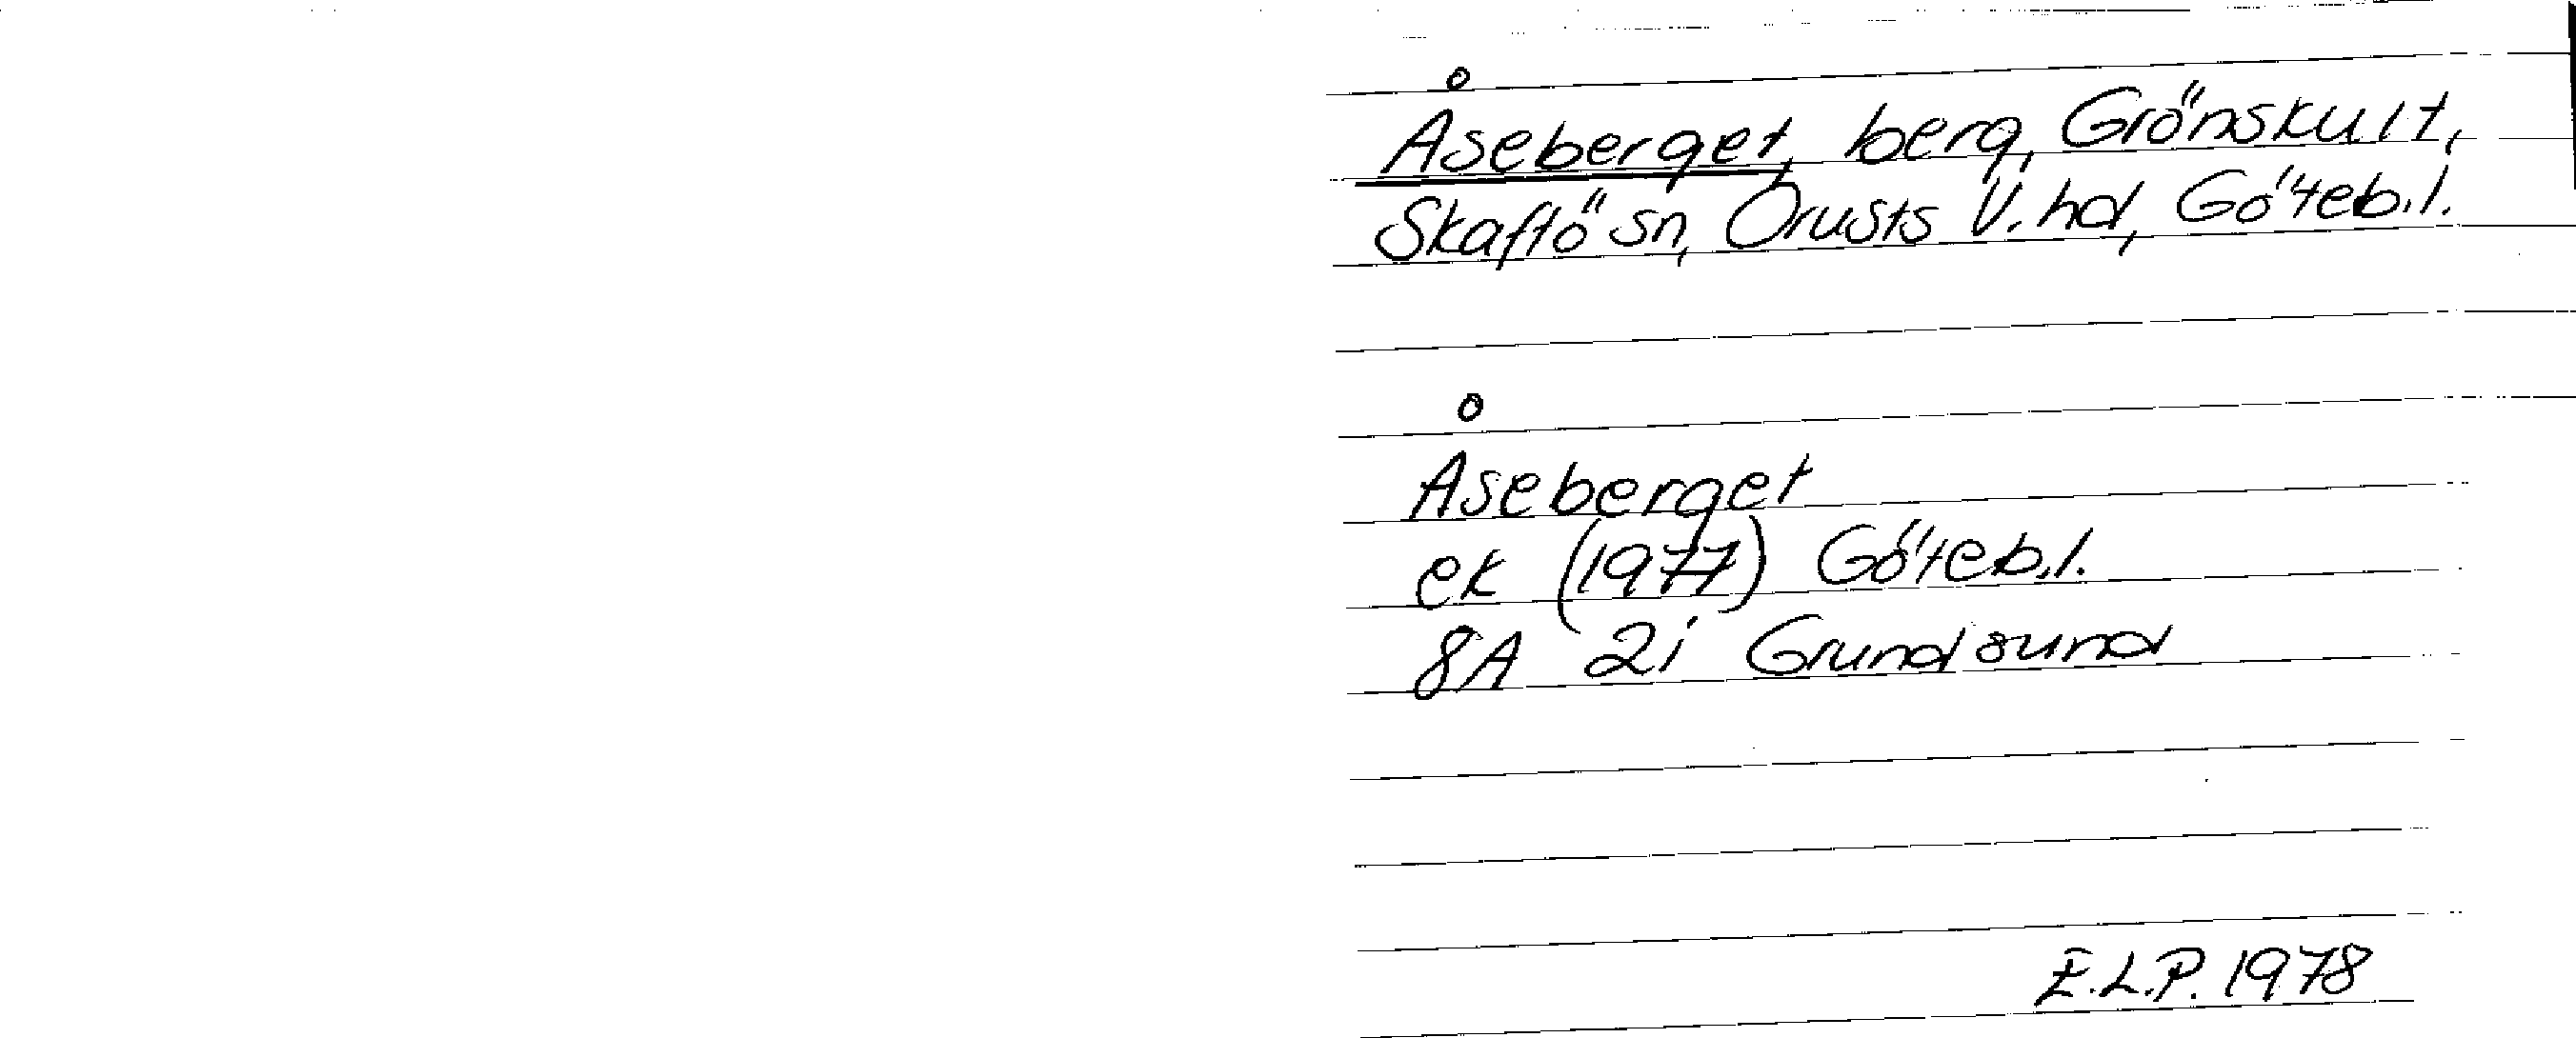 Åseberget, berg, Grönskult,
Skaftö sn, Orusts V. hd, Göteb. l.
Åseberget
ek (1977) Göteb. l.
8A 2i Grundsund
E.L.P. 1978